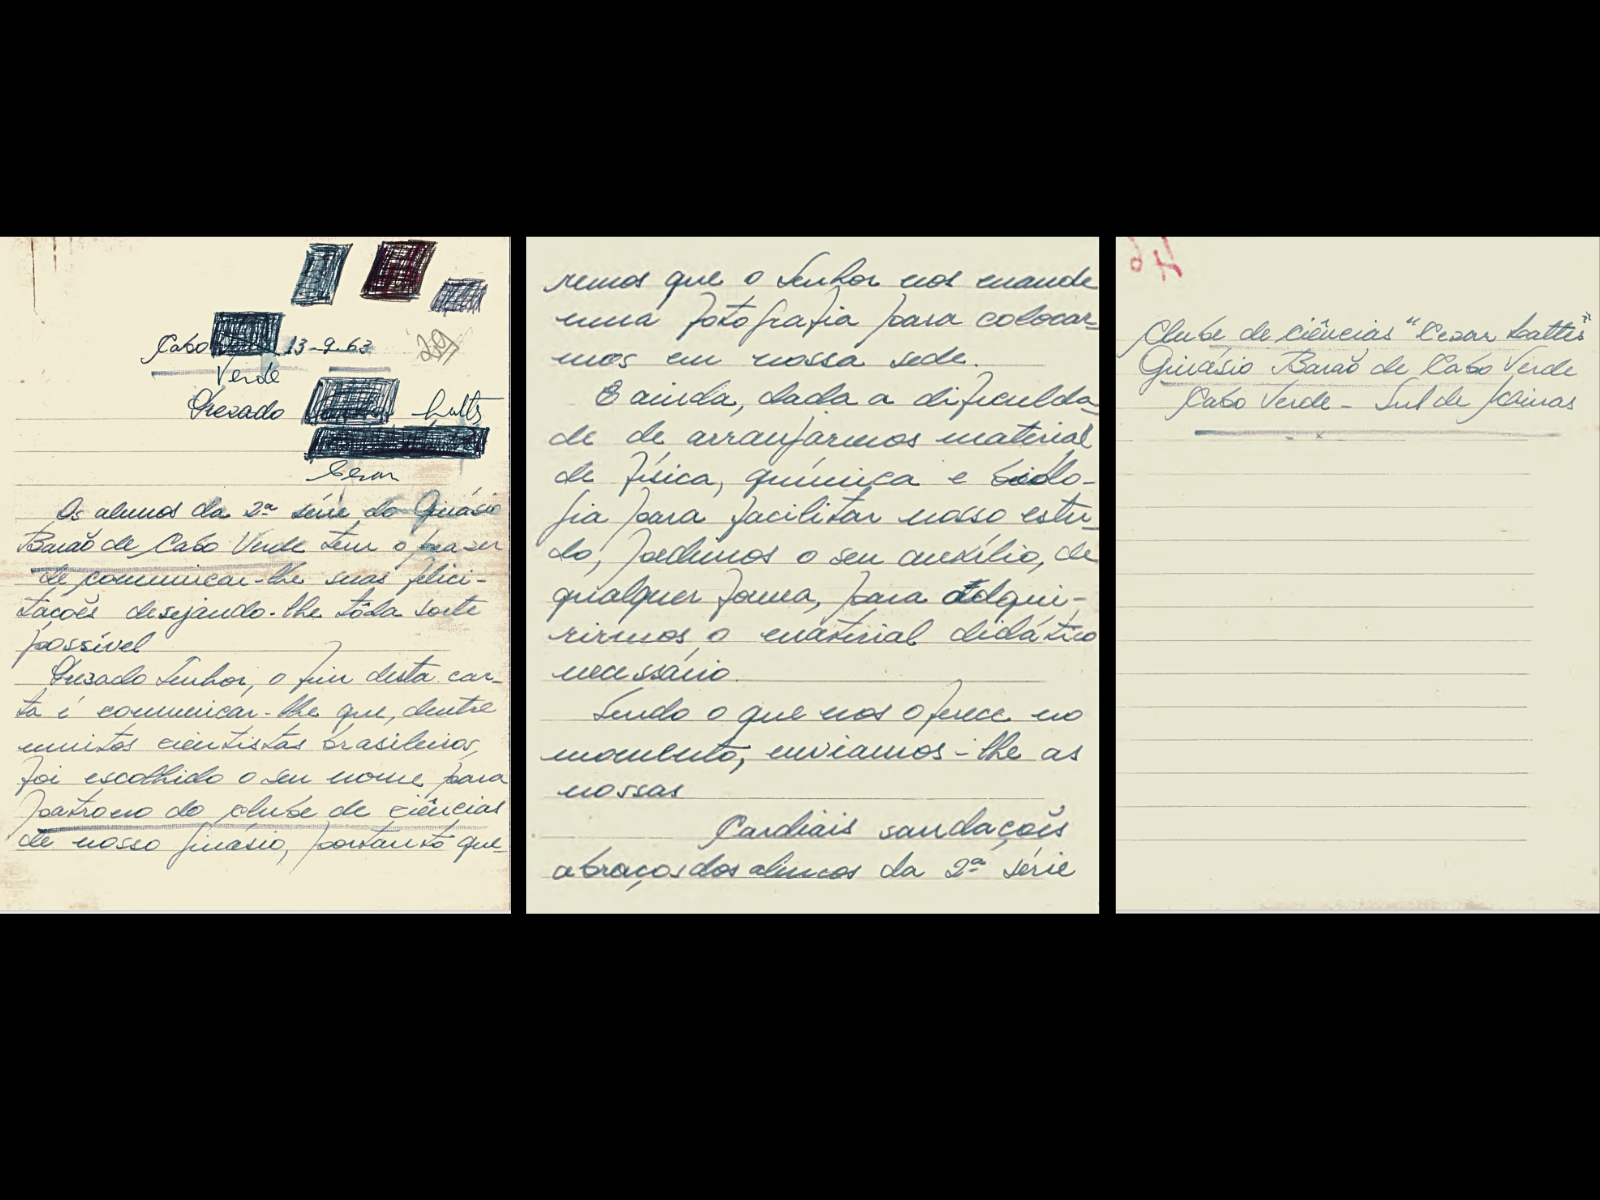 29
Cabo 13-9-63
Verde
Prezado Lattes
Cesar
Os alunos da 2ª série do Ginásio
Barão de Cabo Verde tem o prazer
de comunicar-lhe suas felici-
tacões desejando-lhe tôda sorte
possível
Prezado Senhor, o fim desta car-
ta é comunicar-lhe que, dentre
muitos cientistas brasileiros,
foi escolhido o seu nome, para
patrono do clube de ciências
de nosso ginásio, portanto que-
remos que o Senhor nos mande
uma fotografia para colocar-
mos em nossa sede.
E ainda, dada a dificulda-
de de arranjarmos material
de física, química e biolo-
gia para facilitar nosso estu-
do, pedimos o seu auxílio, de
qualquer forma, para adqui-
rirmos o material didático
necessário.
Sendo o que nos oferece no
momento, enviamos-lhe as
nossas
Cardiais saudações
abraços dos alunos da 2ª série
Clube de Ciências "Cezar Lattes"
Ginásio Barão de Cabo Verde
Cabo Verde - Sul de Minas